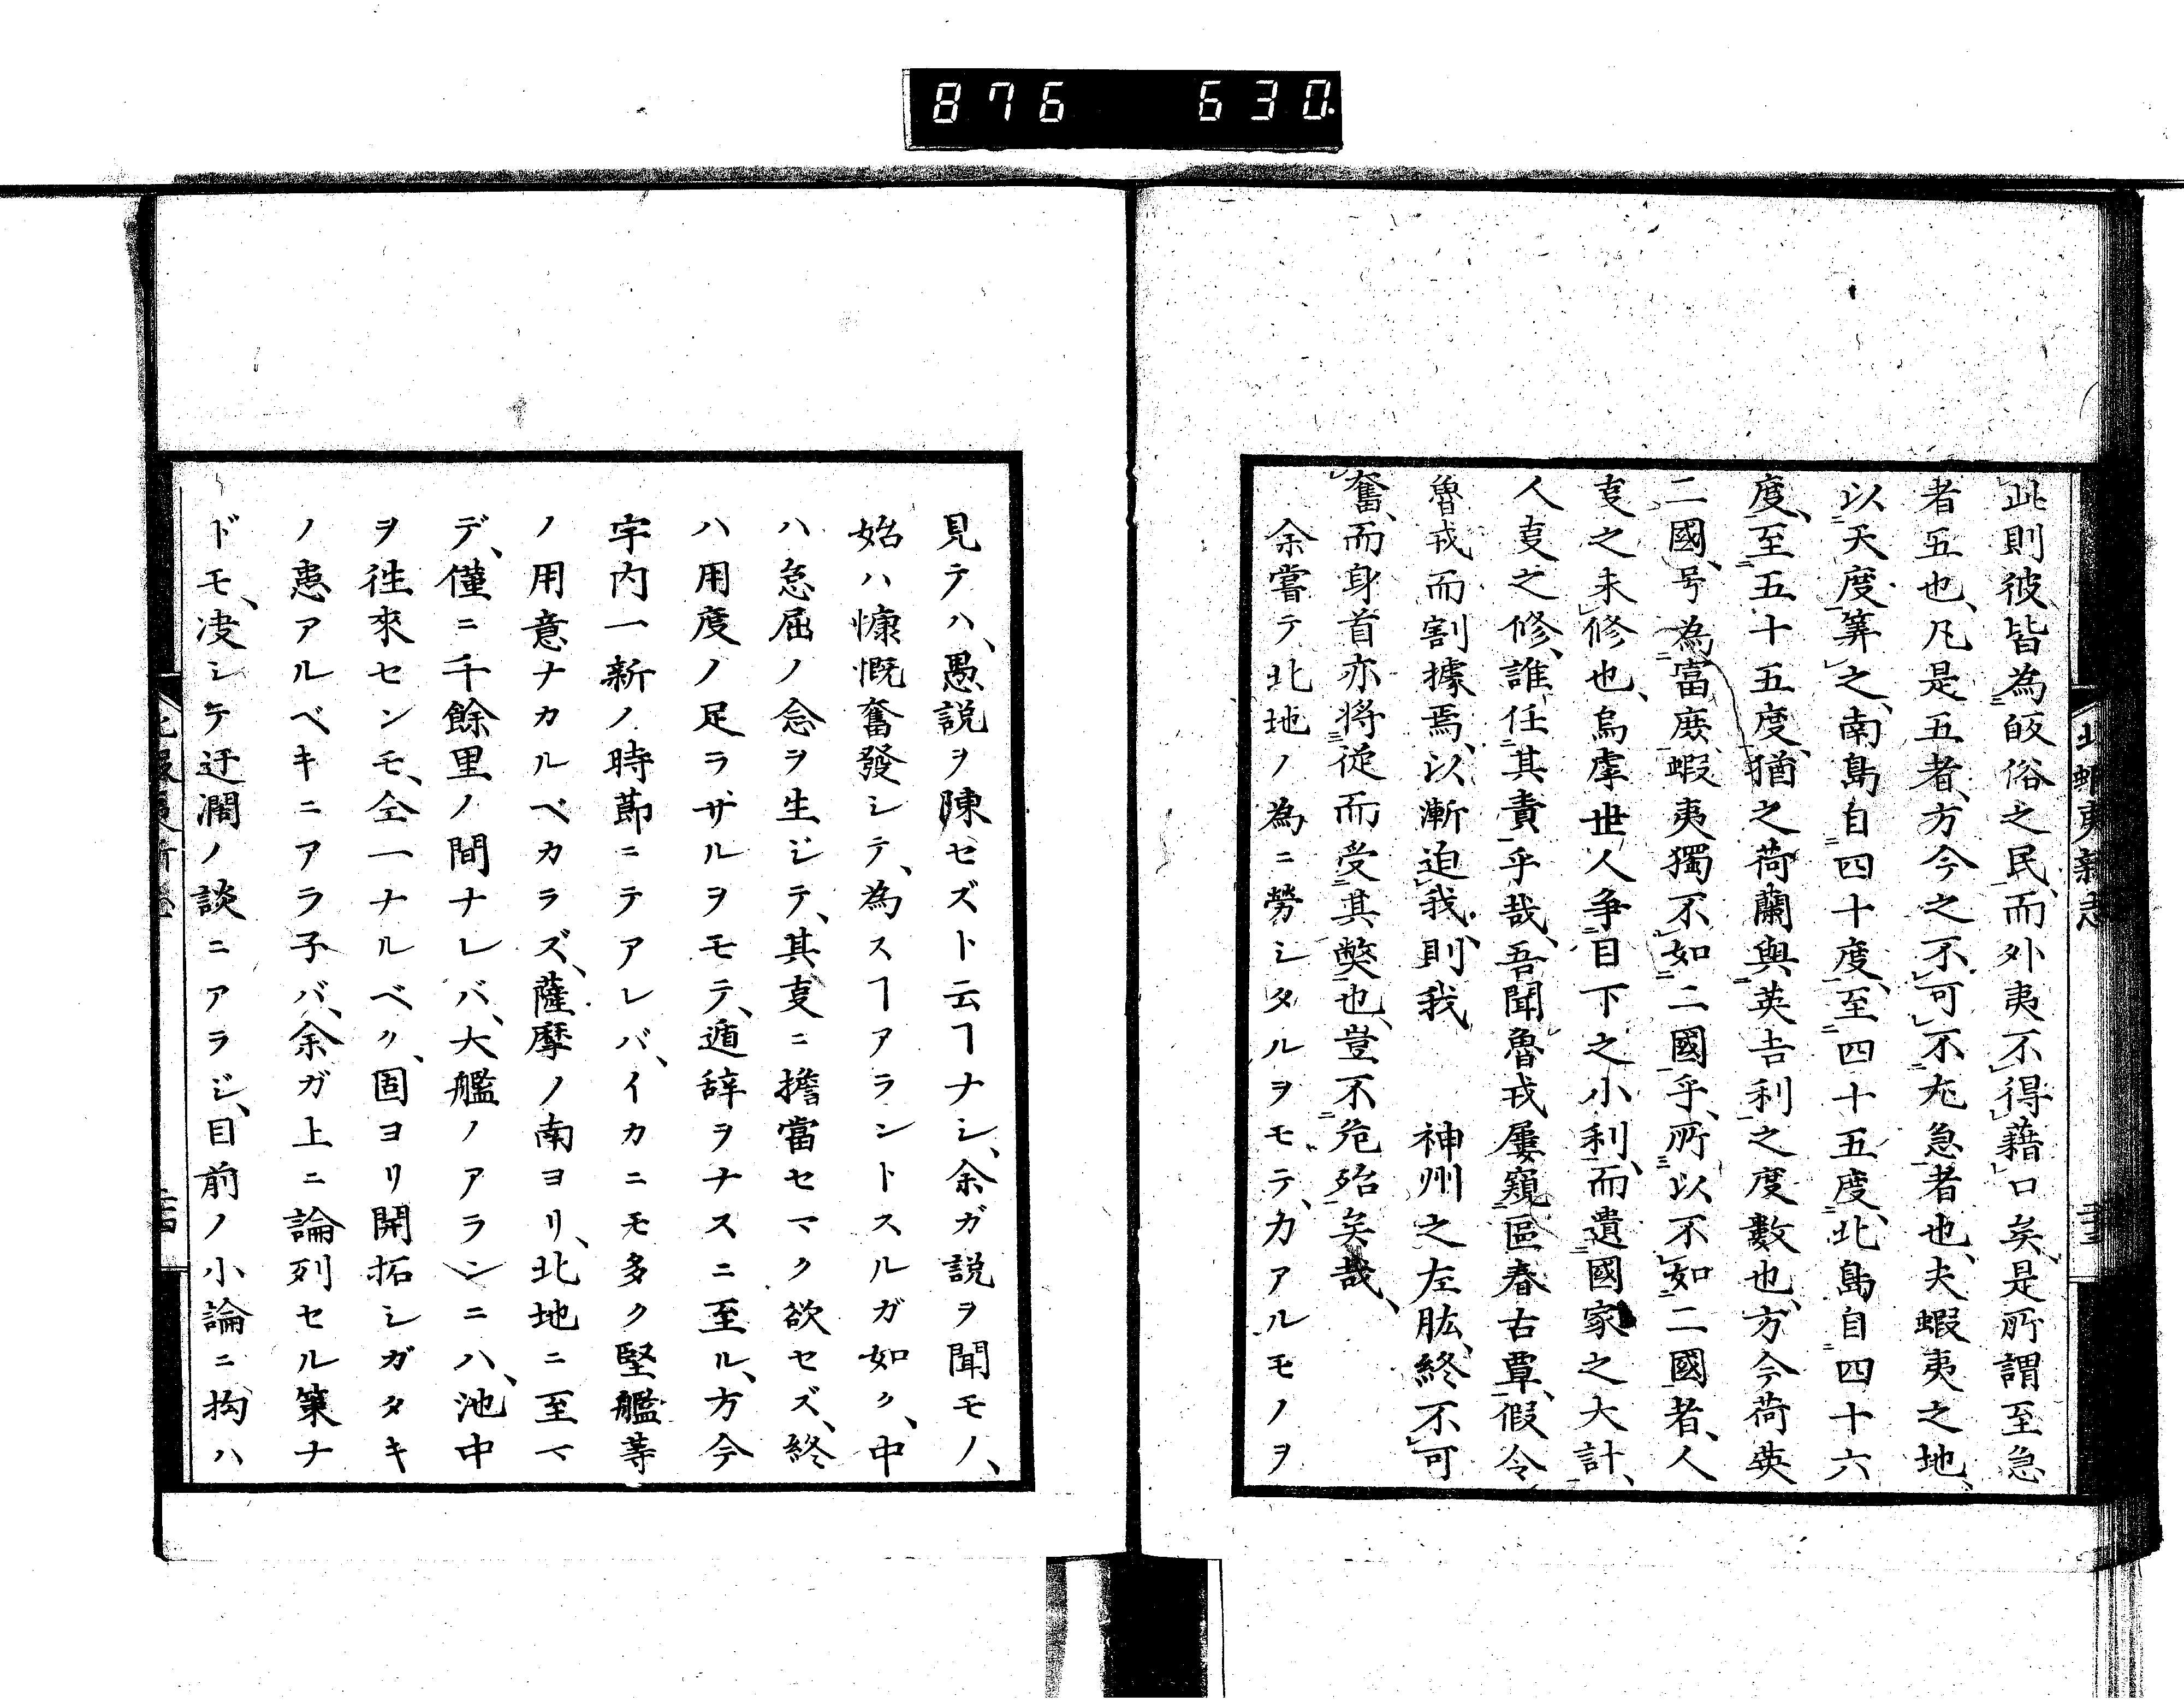 876 630
北蝦夷新志
此則彼皆為皈俗之民、而外夷不得藉口矣、是所謂至急
者五也、凡是五者、方今之不可不尤急者也、夫蝦夷之地、
以天度算之、南島自四十度、至四十五度、北島自四十六
度、至五十五度、猶之荷蘭與英吉利之度數也、方今荷英
二國、号為富庶、蝦夷獨不如二國乎、所以不如二國者、人
叓之未修也、烏虖世人爭目下之小利、而遺國家之大計、
人叓之修、誰任其責乎哉、吾聞魯戎屢窺區春古覃、假令
魯戎而割據焉、以漸迫我、則我　神州之左肱、終不可
奮、而身首亦将従而受其弊也、豈不危殆矣哉、
余嘗テ北地ノ為ニ勞シタルヲモテ、力アルモノヲ
見テハ、愚説ヲ陳セズト云ヿナシ、余ガ説ヲ聞モノ、
始ハ慷慨奮發シテ、為スヿアラントスルガ如ク、中
ハ怠屈ノ念ヲ生ジテ、其叓ニ擔當セマク欲セズ、終
ハ用度ノ足ラザルヲモテ、遁辞ヲナスニ至ル、方今
宇内一新ノ時莭ニテアレバ、イカニモ多ク堅艦等
ノ用意ナカルベカラズ、薩摩ノ南ヨリ、北地ニ至マ
デ、僅ニ千餘里ノ間ナレバ、大艦ノアランニハ、池中
ヲ徃來センモ、仝一ナルベク、固ヨリ開拓シガタキ
ノ患アルベキニアラ子バ、余ガ上ニ論列セル策ナ
ドモ、决シテ迂濶ノ談ニアラジ、目前ノ小論ニ拘ハ